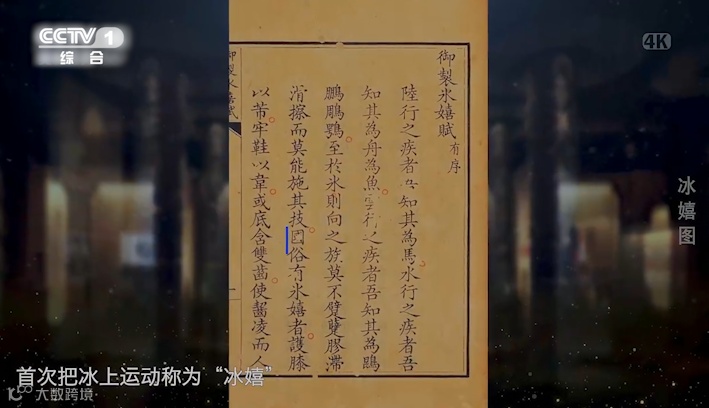 CCTV 1
综合
4K
御製冰嬉賦 有序
陸行之疾者吾知其為馬水行之疾者吾
知其為舟為魚雲行之疾者吾知其為鵾
鵬鵰鶚至於氷則向之族莫不躄躠膠滯
滑擦而莫能施其技國俗有氷嬉者護膝
以芾牢鞋以韋或底含雙齒使齧凌而人
冰嬉图
首次把冰上运动称为“冰嬉”
大数跨境